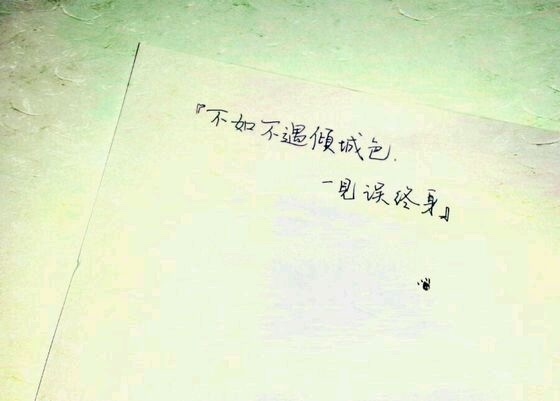 『不如不遇傾城色.
一見误终身』